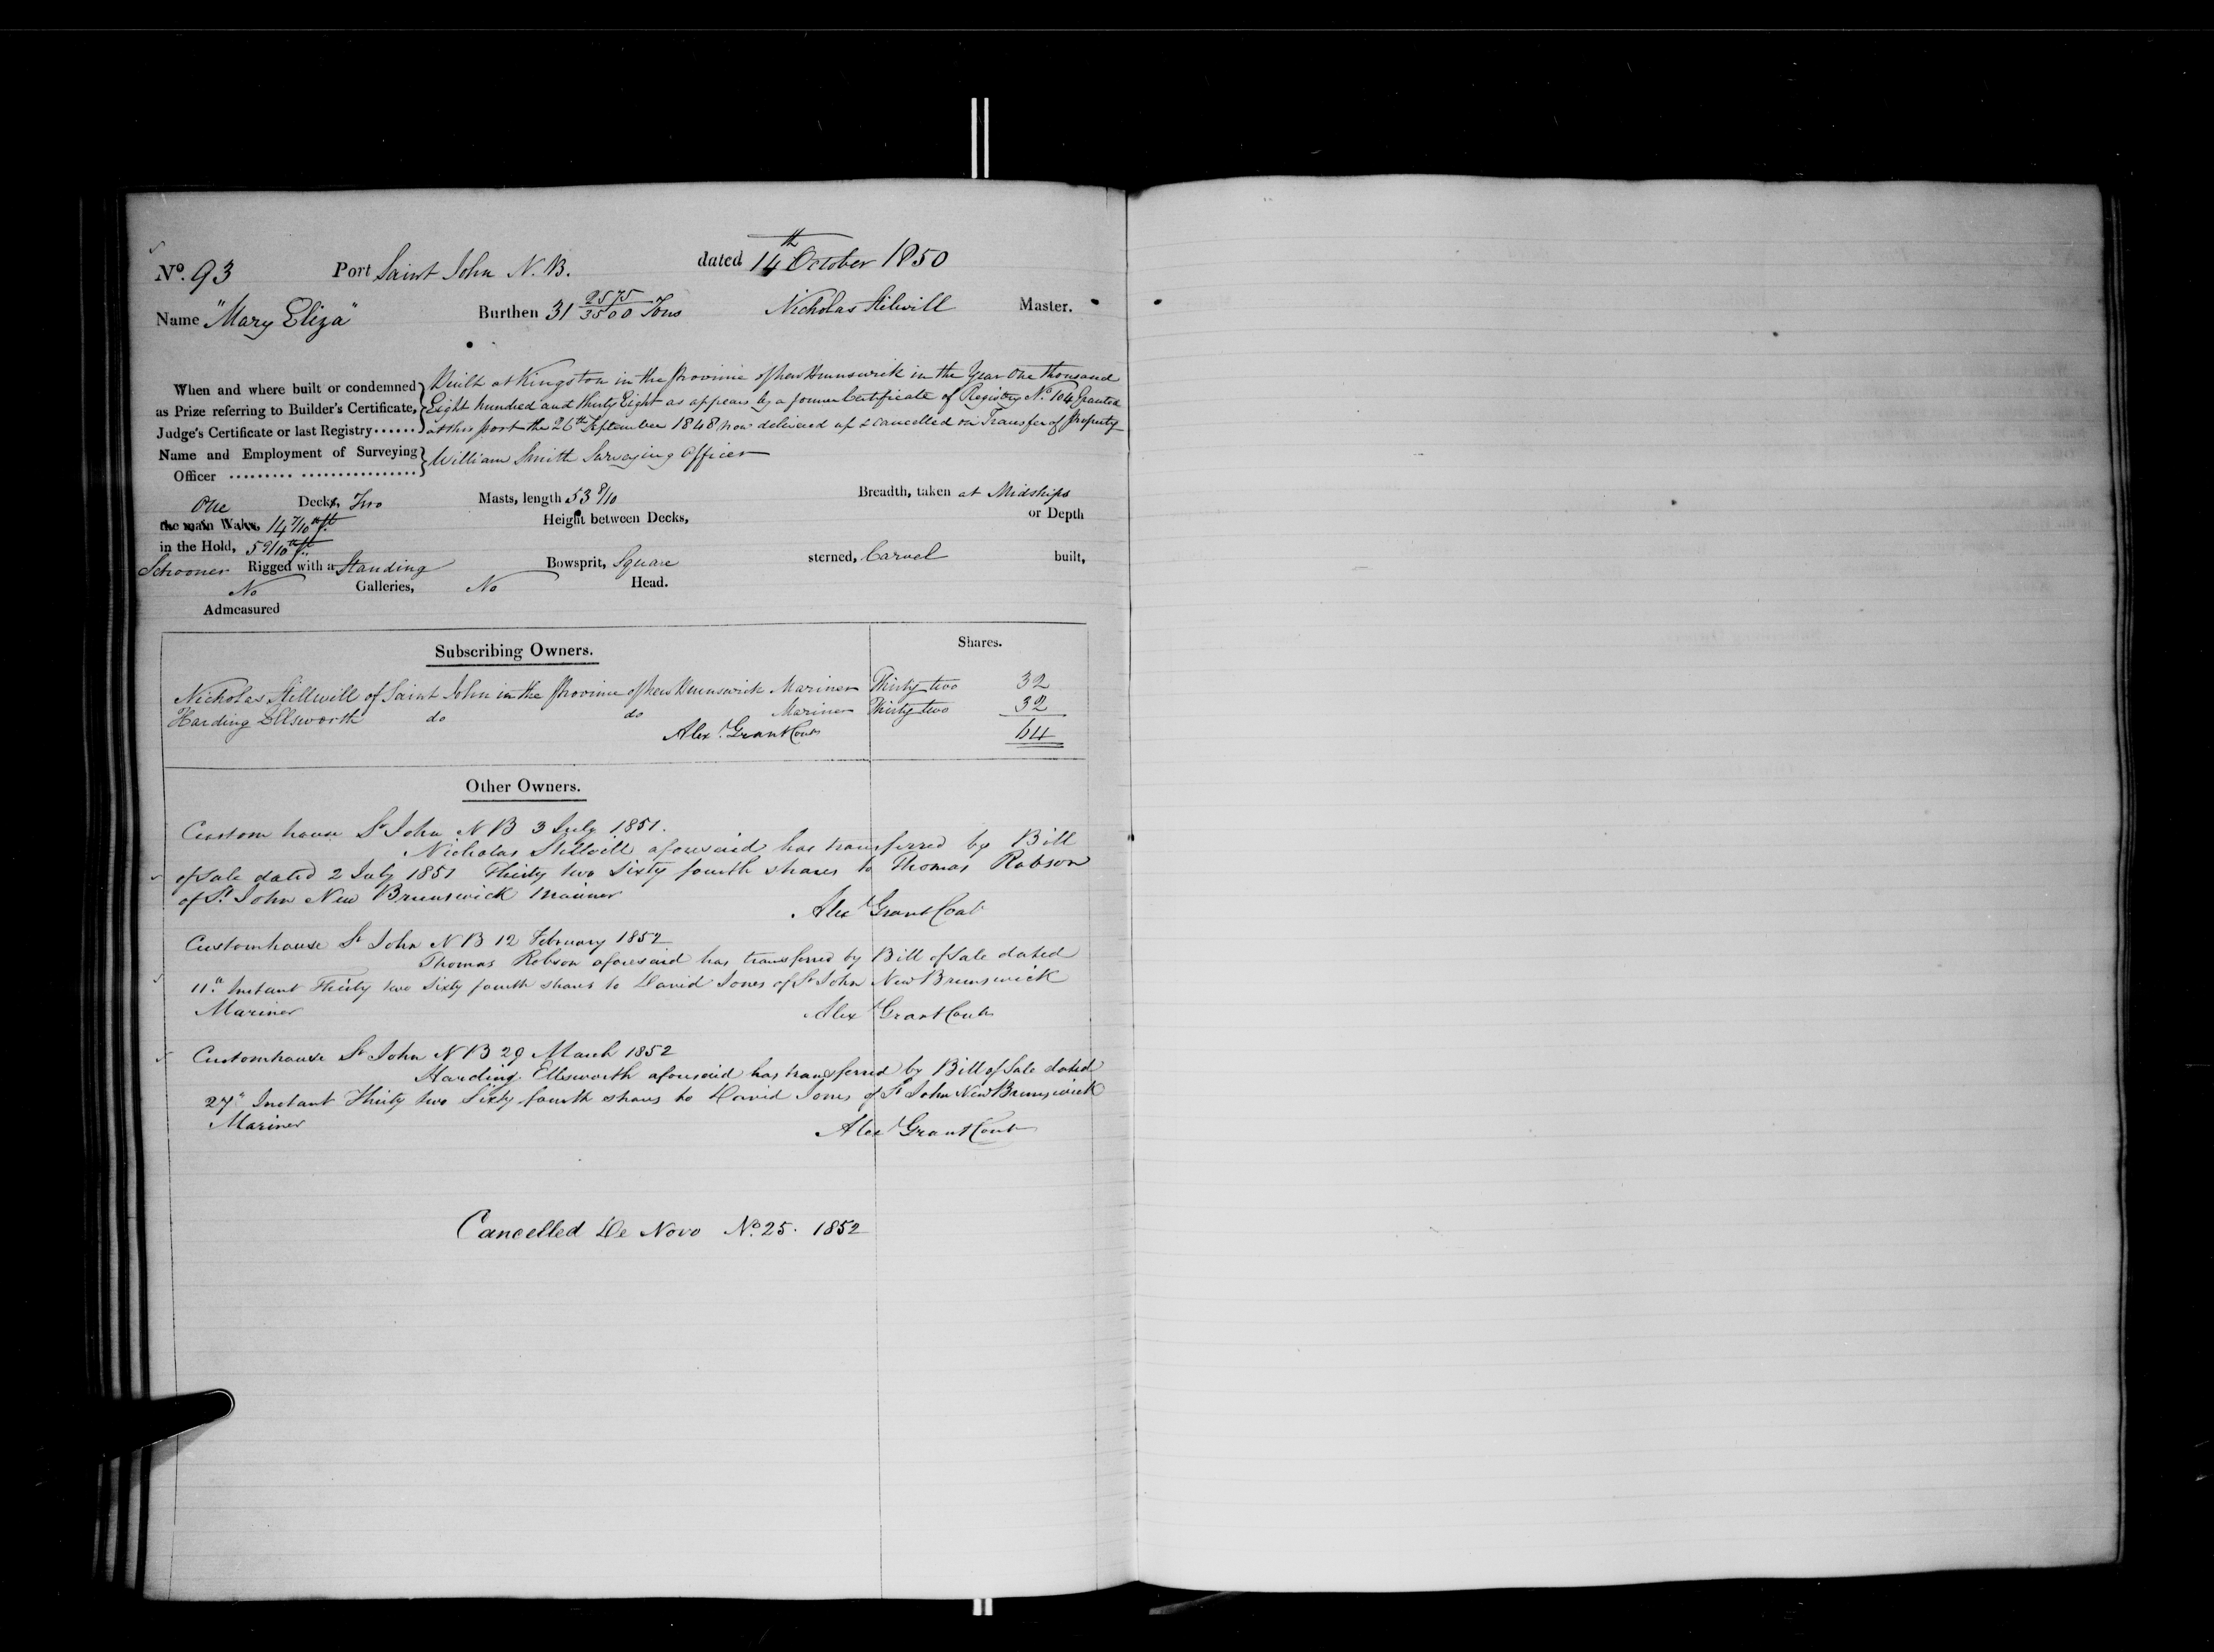 No. 93 Port Saint John N.B. dated 14th October 1850
Name "Mary Eliza" Burthen 31 2575/3500 Tons Nicholas Stilwill Master.
When and where built or condemned as Prize referring to Builder's Certificate, Judge's Certificate or last Registry......
Built at Kingston in the Province of New Brunswick in the Year One thousand
Eight hundred and thirty Eight as appears by a former Certificate of Registry No. 104 Granted
at this port the 26th September 1848 now delivered up & cancelled on Transfer of Property
Name and Employment of Surveying Officer
William Smith Surveying Officer
One Decks, Two Masts, length 53 8/10 Breadth, taken at Midships
the main Wales, 14 7/10th ft. Height between Decks, or Depth
in the Hold, 5 9/10th ft.
Schooner Rigged with a Standing Bowsprit, Square sterned, Carvel built,
No Galleries, No Head.
Admeasured
Subscribing Owners. Shares.
Nicholas Stillwill of Saint John in the Province of New Brunswick Mariner Thirty two 32
Harding Ellsworth do do Mariner Thirty two 32
Alex. Grant Cont 64
Other Owners.
Custom house St John N B 3 July 1851.
Nicholas Stillwill aforesaid has transferred by Bill
of Sale dated 2 July 1851 Thirty two Sixty fourth shares to Thomas Robson
of St. John New Brunswick Mariner
Alex Grant Cont
Customhouse St John N B 12 February 1852
Thomas Robson aforesaid has transferred by Bill of Sale dated
11" Instant Thirty two Sixty fourth shares to David Jones of St John New Brunswick
Mariner Alex Grant Cont
Customhouse St John N B 29 March 1852
Harding Ellsworth aforesaid has transferred by Bill of Sale dated
27" Instant Thirty two Sixty fourth shares to David Jones of St John New Brunswick
Mariner Alex Grant Cont
Cancelled De Novo No. 25. 1852